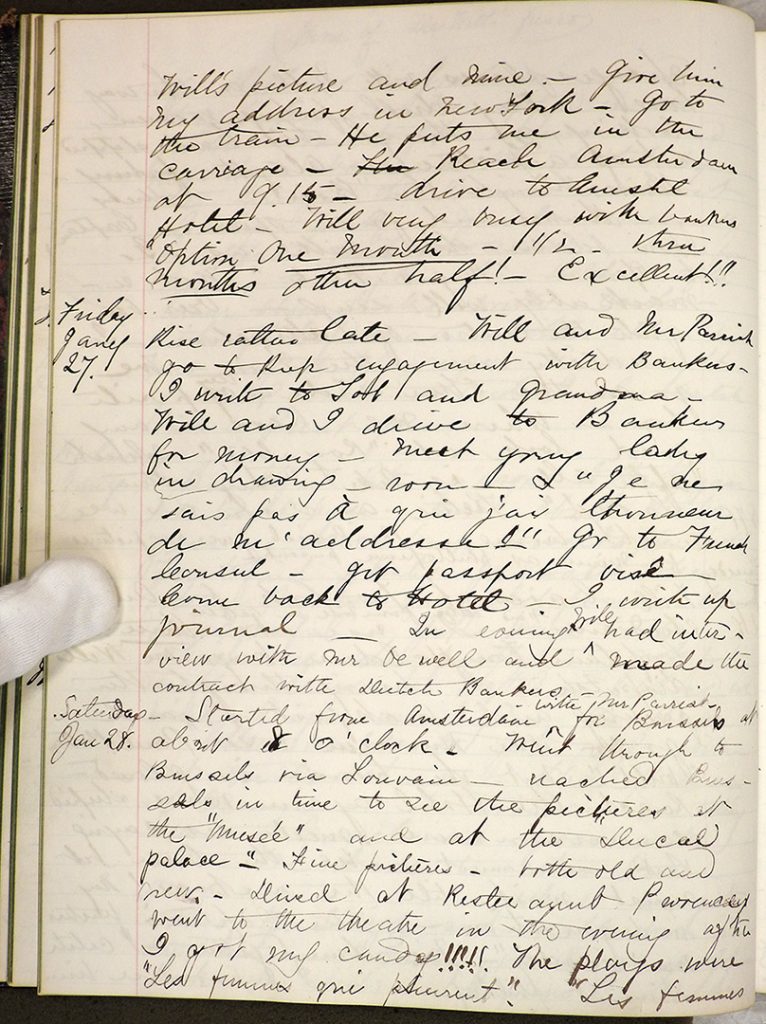 Will's picture and mine. - Give him
my address in New York - Go to
the train - He puts me in the
carriage - Reach Amsterdam
at 9.15 - drive to Amstel
Hotel - Will very busy with bankers
"Option One Month - 1/2 - three
months other half! - Excellent!!"
Friday
Jany
27.
Rise rather late - Will and Mr Parrish
go to keep engagement with Bankers -
I write to and grandma -
Will and I drive to Bankers
for money - Meet young lady
in drawing - room - I "Je ne
sais pas à qui j'ai l'honneur
de m'addresser!" Go to French
Consul - get passport visé -
Come back to Hotel - I write up
journal - In evening Will had inter-
view with Mr and made the
contract with Dutch Bankers
Saturday
Jan 28.
- Started from Amsterdam with Mr Parrish for Brussels at
about 8 o'clock - Went through to
Brussels via Louvain - reached Brus-
sels in time to see the pictures at
the "Musée" and at the "Ducal
palace" - Fine pictures - both old and
new. - Dined at Restaurant
went to the theatre in the evening after
I got my candy!!!!! The plays were
"Les femmes qui pleurent." "Les femmes